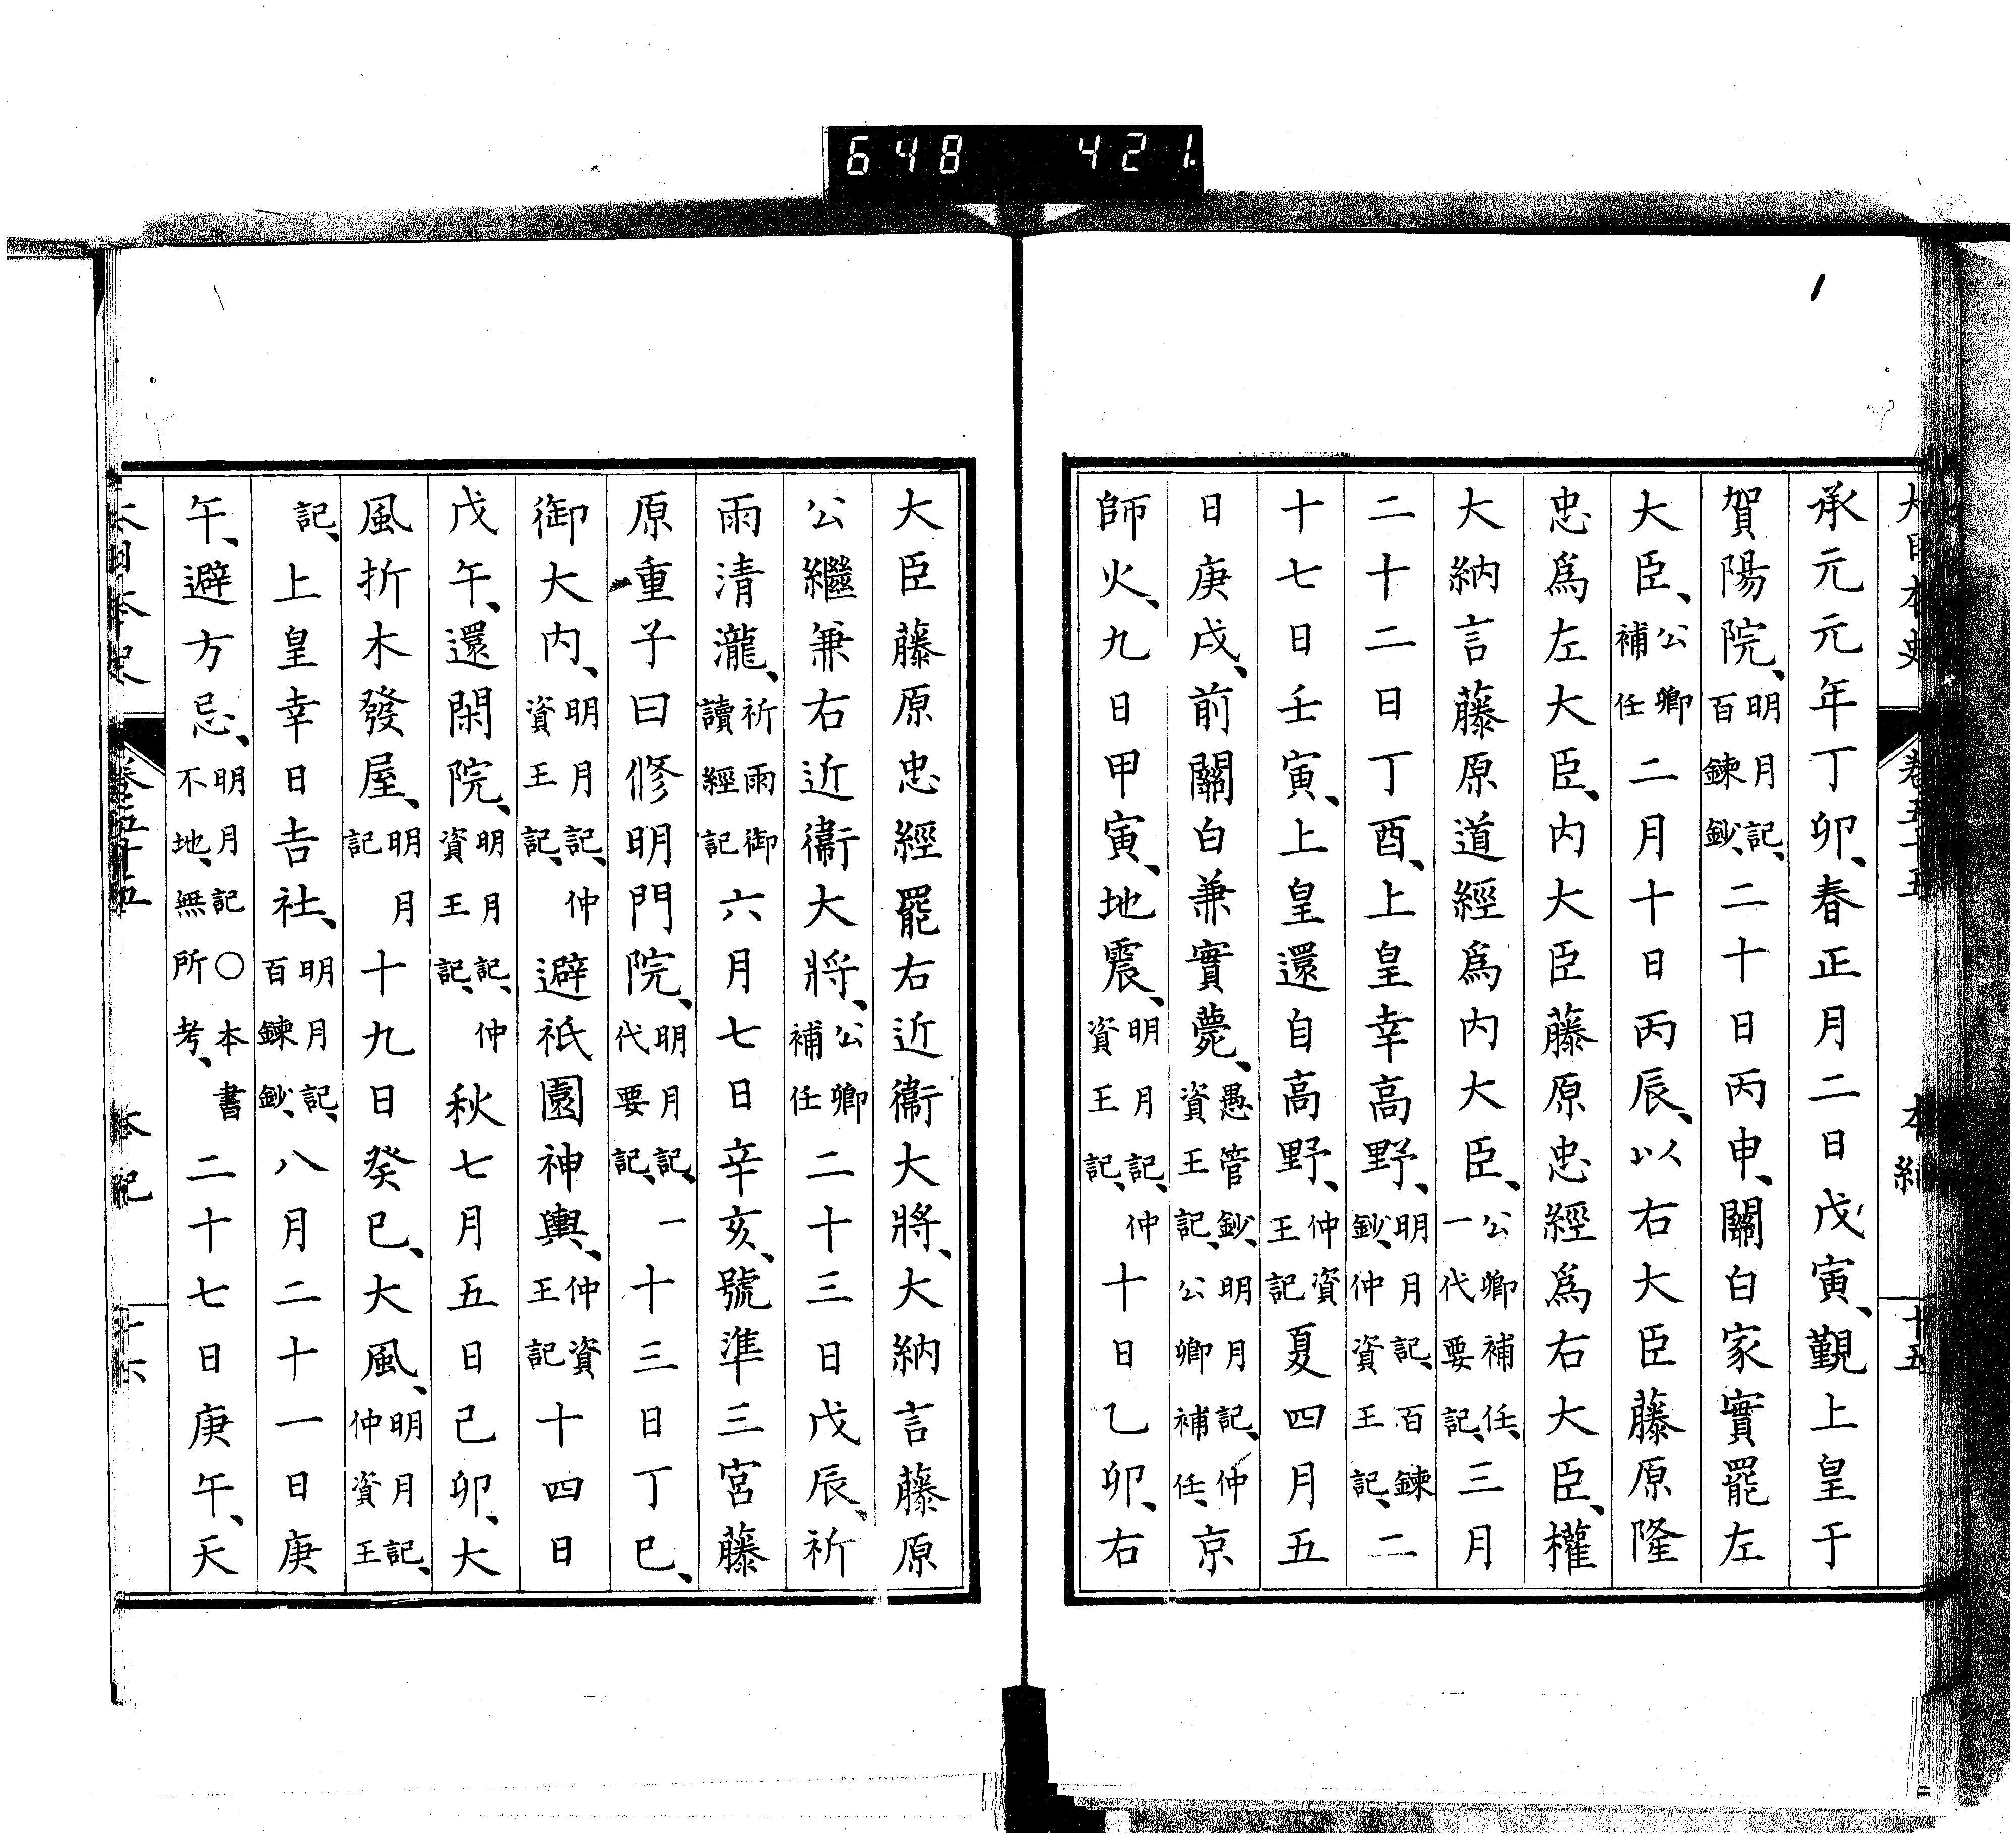 648 421.
大日本史 卷五十五 本紀 十五
承元元年丁卯、春正月二日戊寅、覲上皇于
賀陽院、明月記、百鍊鈔、二十日丙申、關白家實罷左
大臣、公卿補任二月十日丙辰、以右大臣藤原隆
忠爲左大臣、内大臣藤原忠經爲右大臣、權
大納言藤原道經爲内大臣、公卿補任、一代要記、三月
二十二日丁酉、上皇幸高野、明月記、百鍊鈔、仲資王記、二
十七日壬寅、上皇還自高野、仲資王記夏四月五
日庚戌、前關白兼實薨、愚管鈔、明月記、仲資王記、公卿補任、京
師火、九日甲寅、地震、明月記、仲資王記、十日乙卯、右
大臣藤原忠經罷右近衞大將、大納言藤原
公繼兼右近衞大將、公卿補任二十三日戊辰、祈
雨清瀧、祈雨御讀經記六月七日辛亥、號準三宮藤
原重子曰修明門院、明月記、一代要記、十三日丁巳、
御大内、明月記、仲資王記、避祇園神輿、仲資王記十四日
戊午、還閑院、明月記、仲資王記、秋七月五日己卯、大
風折木發屋、明月記十九日癸巳、大風、明月記、仲資王
記、上皇幸日吉社、明月記、百鍊鈔、八月二十一日庚
午、避方忌、明月記〇本書不地、無所考、二十七日庚午、天
大日本史 卷五十五 本紀 十六